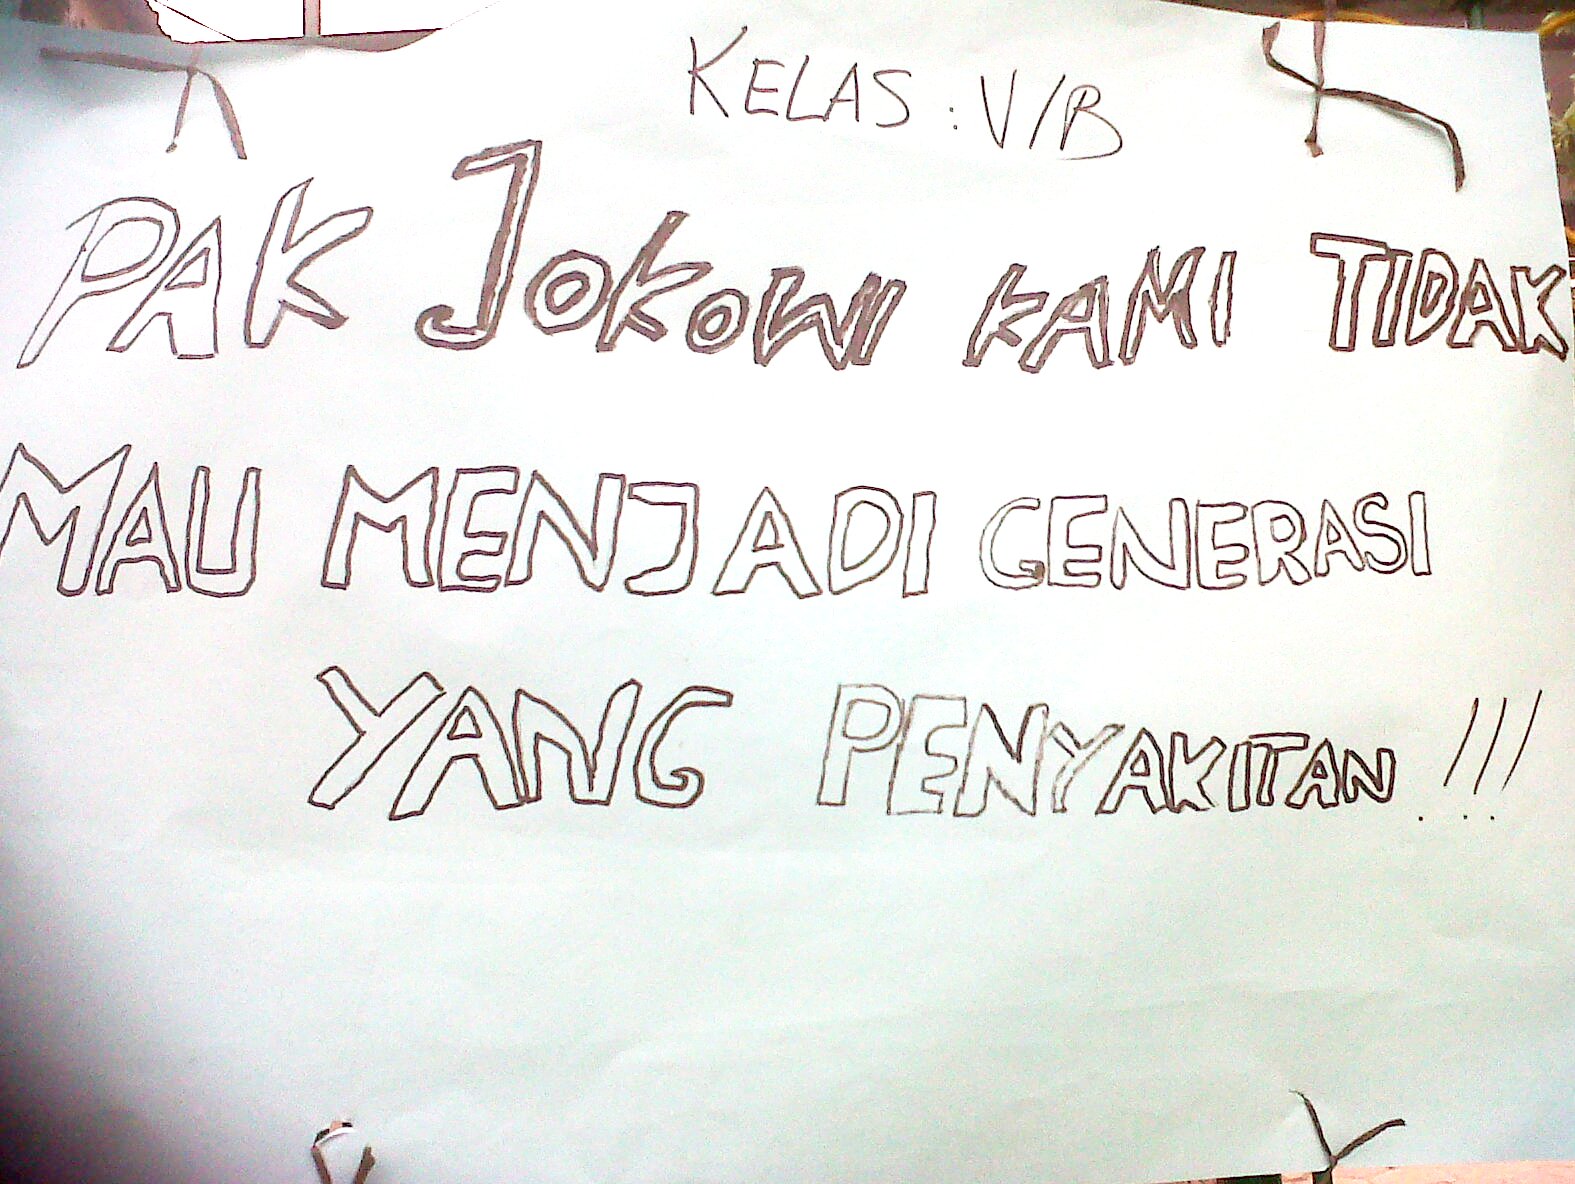 KELAS : V/B
PAK JOKOWI KAMI TIDAK
MAU MENJADI GENERASI
YANG PENYAKITAN !!!